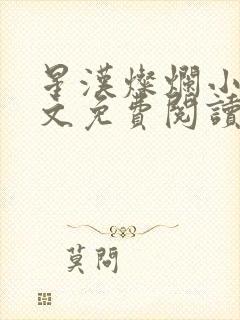 星漢燦爛小
文免費閱讀
莫問